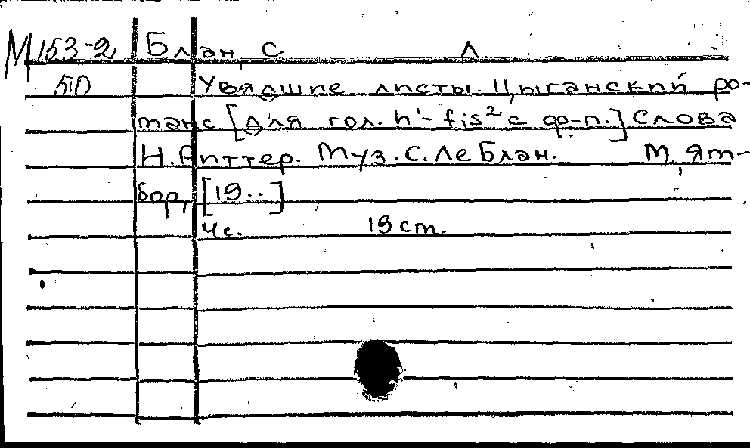 М 153-2 Блан, С. Л
50 Увядшие листы. Цыганский ро-
манс [Для гол. h'-fis² с ф-п.] Слова
Н. Риттер. Муз. С. Ле Блан. М, Ям-
бор, [19..]
4 с. 19 ст.